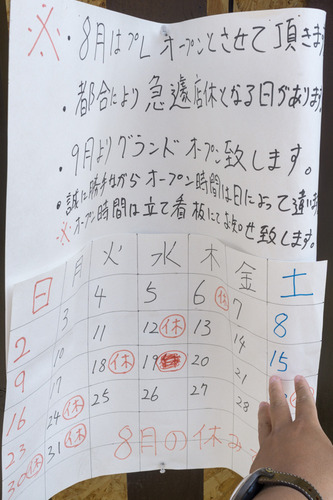 ※・8月はプレオープンとさせて頂きま
・都合により急遽店休となる日があります
・9月よりグランドオープン致します。
・誠に勝手ながらオープン時間は日によって違い
※オープン時間は立て看板にてお知らせ致します。
日 月 火 水 木 金 土
4 5 6 休 7
2 3 11 12 休 13 14 8
9 10 18 休 19 20 21 15
16 17 25 26 27 28
23 24 休
30 休 31 休
8月の休み